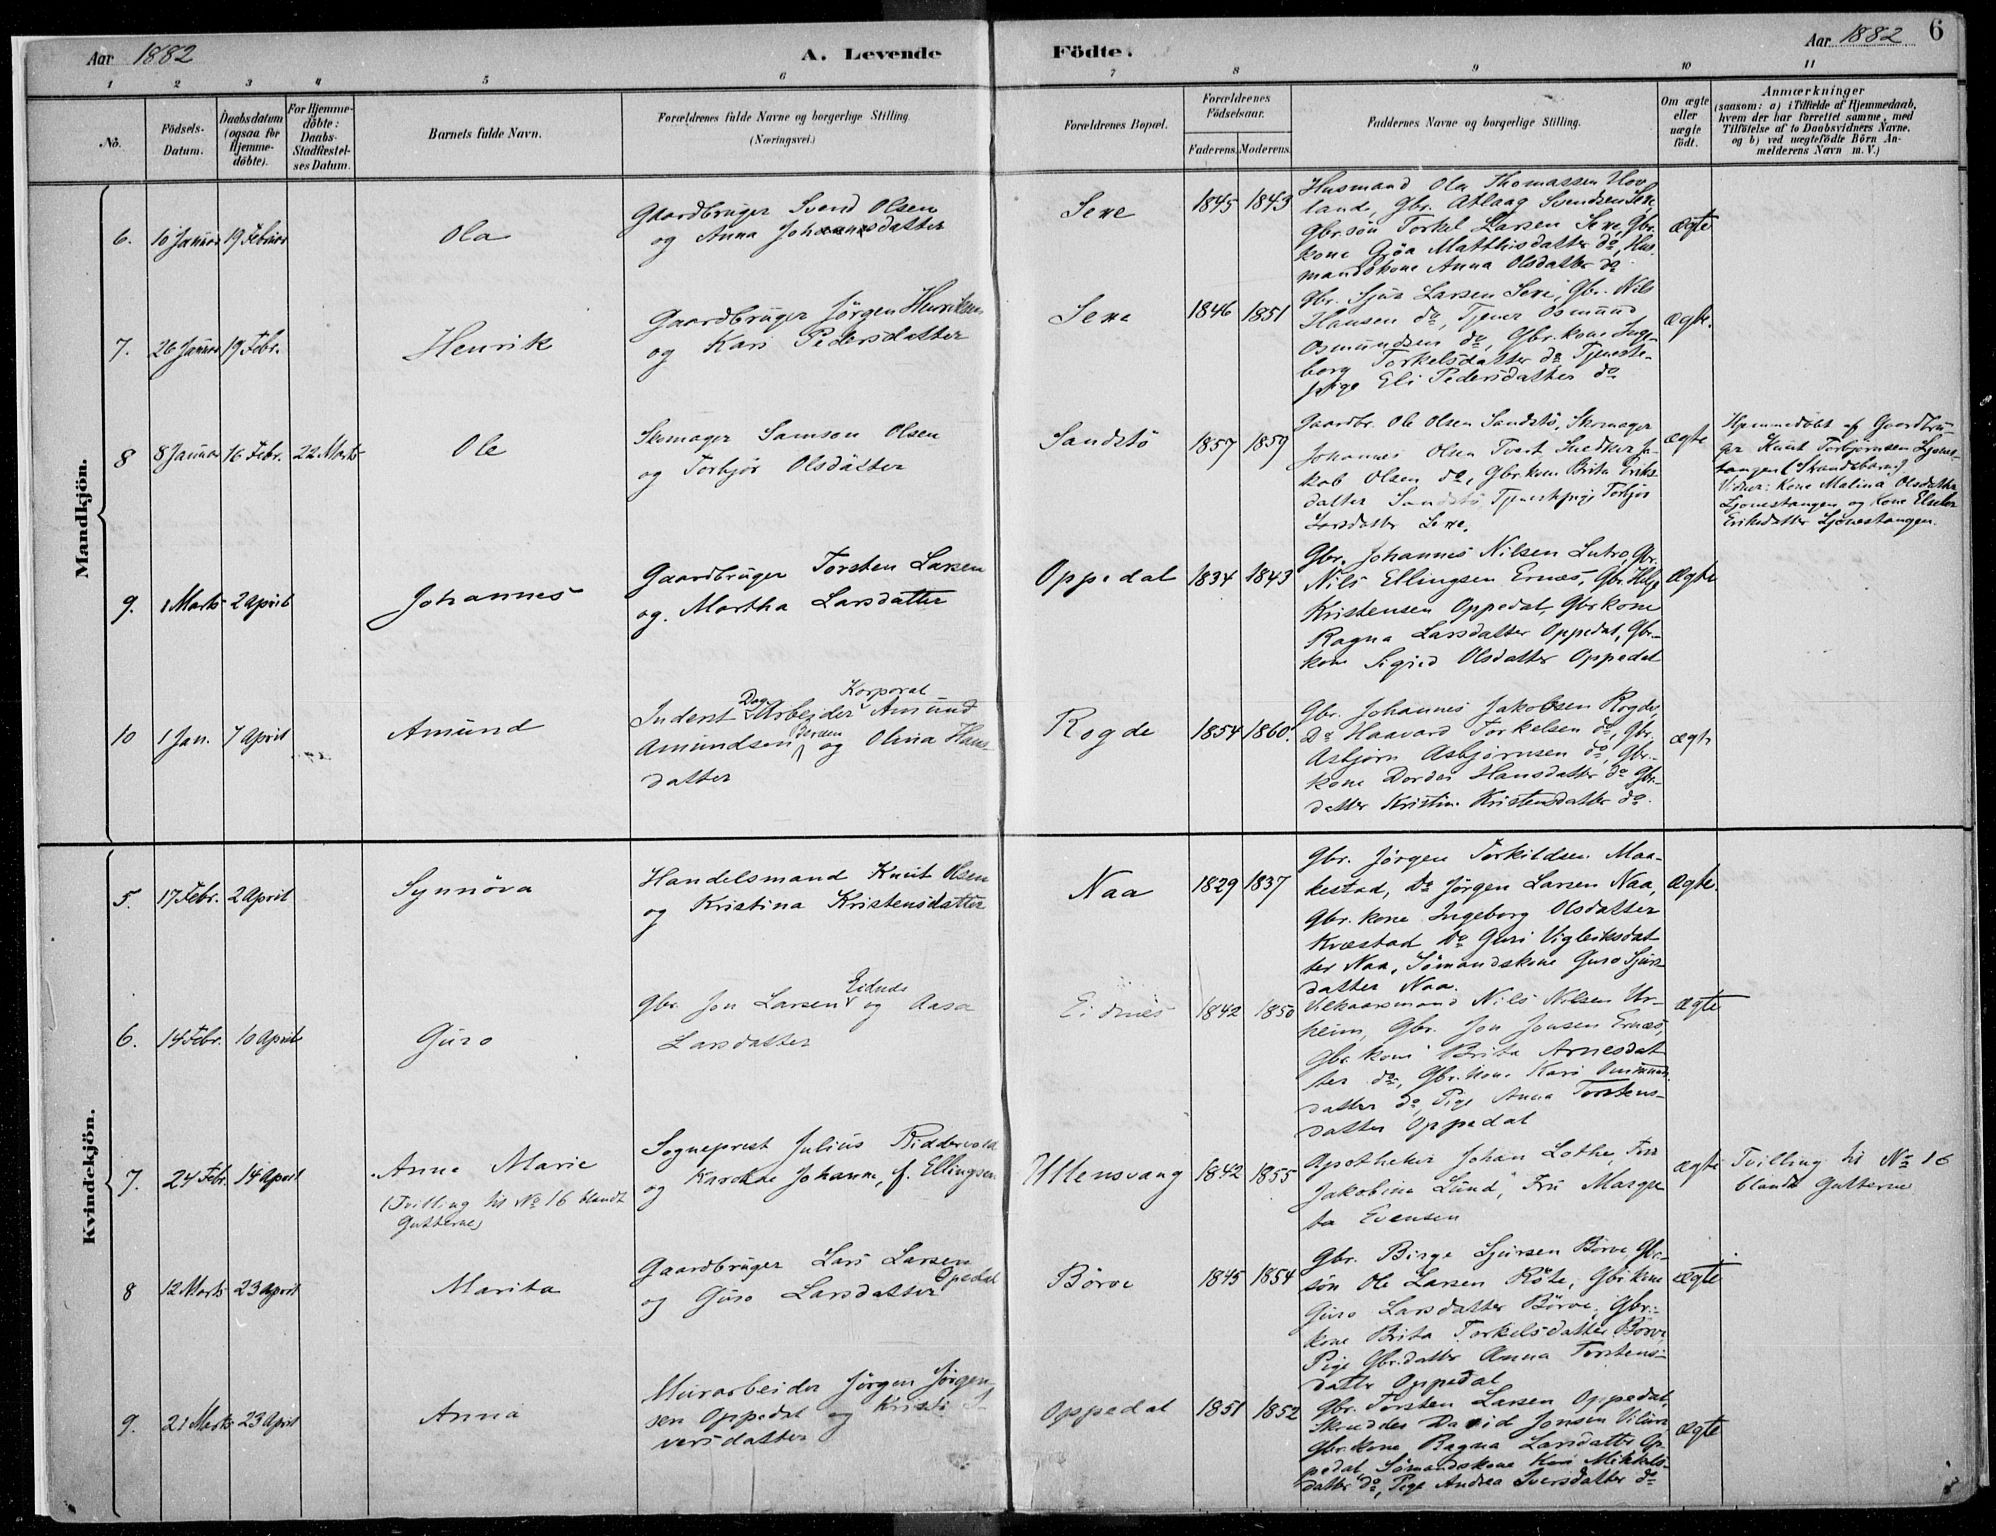 Aar 1882 A. Levende Födte. Aar 1882 6
1 2 3 4 5 6 7 8 9 10 11
No.
Födsels-
Datum.
Daabsdatum
(ogsaa for
Hjemme-
döbte).
For Hjemme-
döbte:
Daabs-
Stadfæstel-
ses Datum.
Barnets fulde Navn.
Forældrenes fulde Navne og borgerlige Stilling.
(Næringsvei.)
Forældrenes Bopæl.
Forældrenes
Födselsaar.
Faderens. Moderens.
Faddernes Navne og borgerlige Stilling.
Om ægte
eller
uægte
födt.
Anmærkninger
(saasom: a) i Tilfælde af Hjemmedaab,
hvem der har forrettet samme, med
Tilföielse af to Daabsvidners Navne.
og b) ved uægtefödte Börn An-
melderens Navn m. V.)
Mandkjön.
6. 10 Januar 19 Februar
Ola
Gaardbruger Svend Olsen
og Anna Johannesdatter
Sexe
1845 1843
Husmand Ola Thomassen Hov-
land, Gbr. Atlaag Svendsen Sexe
Gbr.søn Torkel Larsen Sexe, Gbr.
kone Gjøa Matthisdatter do, Hus-
mandskone Anna Olsdatter do
ægte
7. 26 Januar 19 Febr.
Henrik
Gaardbruger Jørgen Henriksen
og Kari Pedersdatter
Sexe
1846 1851
Gbr. Sjur Larsen Sexe, Gbr. Nils
Hansen do, Tjener Osmund
Osmundsen do, Gbr.kone Inge-
borg Torkelsdatter do Tjeneste-
pige Eli Pedersdatter do
ægte.
8 8 Januar 16 Febr. 22 Marts
Ole
Skomager Samson Olsen
og Torbjør Olsdatter
Sandstö
1857 1859
Gaardbr. Ole Olsen Sandstö, Skomager
Johannes Olsen Tveit Snedker Ja-
kob Olsen do, Gbr.kone Brita Eriks-
datter Sandstö Tjenestepige Torbjør
Larsdatter Sexe.
ægte
Hjemmedøbt af Gaardbru-
ger Knut Torbjørnsen Ljones-
tangen (Strandebarm)
Vidner: Kone Malina Olsdatter
Ljonestangen og Kone
Eriksdatter Ljonestangen.
9. 1 Marts 2 April
Johannes
Gaardbruger Torsten Larsen
og Martha Larsdatter
Oppedal
1834 1843
Gbr. Johannes Nilsen Lutro, Gbr.
Nils Ellingsen Ernæs, Gbr. Helje
Kristensen Oppedal, Gbr.kone
Ragna Larsdatter Oppedal, Gbr-
kone Sigrid Olsdatter Oppedal
ægte
10 1 Jan. 7 April
Amund
Dag Korporal
Inderst Arbeider Amund
Amundsen og Olina Hans-
datter
Rogde
1854 1860.
Gbr. Johannes Jakobsen Rogde,
Do Haavard Torkelsen do, Gbr.
Asbjørn Asbjørnsen do, Gbr.-
kone Dordei Hansdatter do Gbr-
datter Kristine Kristensdatter do.
ægte
Kvindekjön.
5. 17 Febr. 2 April
Synnöva
Handelsmand Knut Olsen
og Kristina Kristensdatter
Naa
1829 1837
Gbr. Jørgen Torkildsen Maa-
kestad, Do Jørgen Larsen Naa,
Gbr.kone Ingeborg Olsdatter
Kvæstad Do Guri Vigleiksdat
ter Naa, Sømandskone Guro Sjurs-
datter Naa.
Ægte
6. 14 Febr. 10 April
Guro
Eidnæs
Gbr. Jon Larsen og Aasa
Larsdatter
Eidnes
1842 1850
Vilkaarsmand Nils Nilsen Ur-
heim, Gbr. Jon Jonsen Ernæs,
Gbr.kone Brita Arnesdat
ter do, Gbr.kone Kari Omunds-
datter do, Pige Anna Torstens-
datter Oppedal
ægte
7. 24 Febr. 14 April
Anna Marie
(Tvilling til No 16 blandt
Gutterne)
Sogneprest Julius Riddervold
og Karen Johanne, f. Ellingsen
Ullensvang
1842 1855
Apotheker Johan Lothe, Fru
Jakobine Lund, Fru Margre-
ta Evensen
ægte
Tvilling til No 16
blandt Gutterne
8 12 Marts 23 April
Marita
Gaardbruger Lars Larsen
Opedal
og Guro Larsdatter
Börve
1845 1854
Gbr. Birge Sjursen Börve, Gbr.-
søn Ole Larsen Röte, Gbr.kone
Guro Larsdatter Börve, Gbr.-
kone Brita Torkelsdatter Börve,
Pige Gbr.datter Anna Torstens-
datter Oppedal
ægte
9. 21 Marts 23 April
Anna
Murarbeider Jørgen Jørgen-
sen Oppedal og Kristi I-
versdatter
Oppedal
1851 1852
Gbr. Torsten Larsen Oppedal,
Skrædder David Jonsen Vilure
Gbr.kone Ragna Larsdatter Op-
pedal, Sømandskone Kari Mikkels-
datter do, Pige Andrea Iversdatter do
ægte